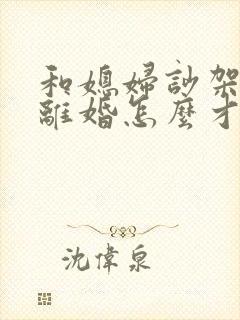 和媳婦訬架
離婚怎麼才
沈偉泉